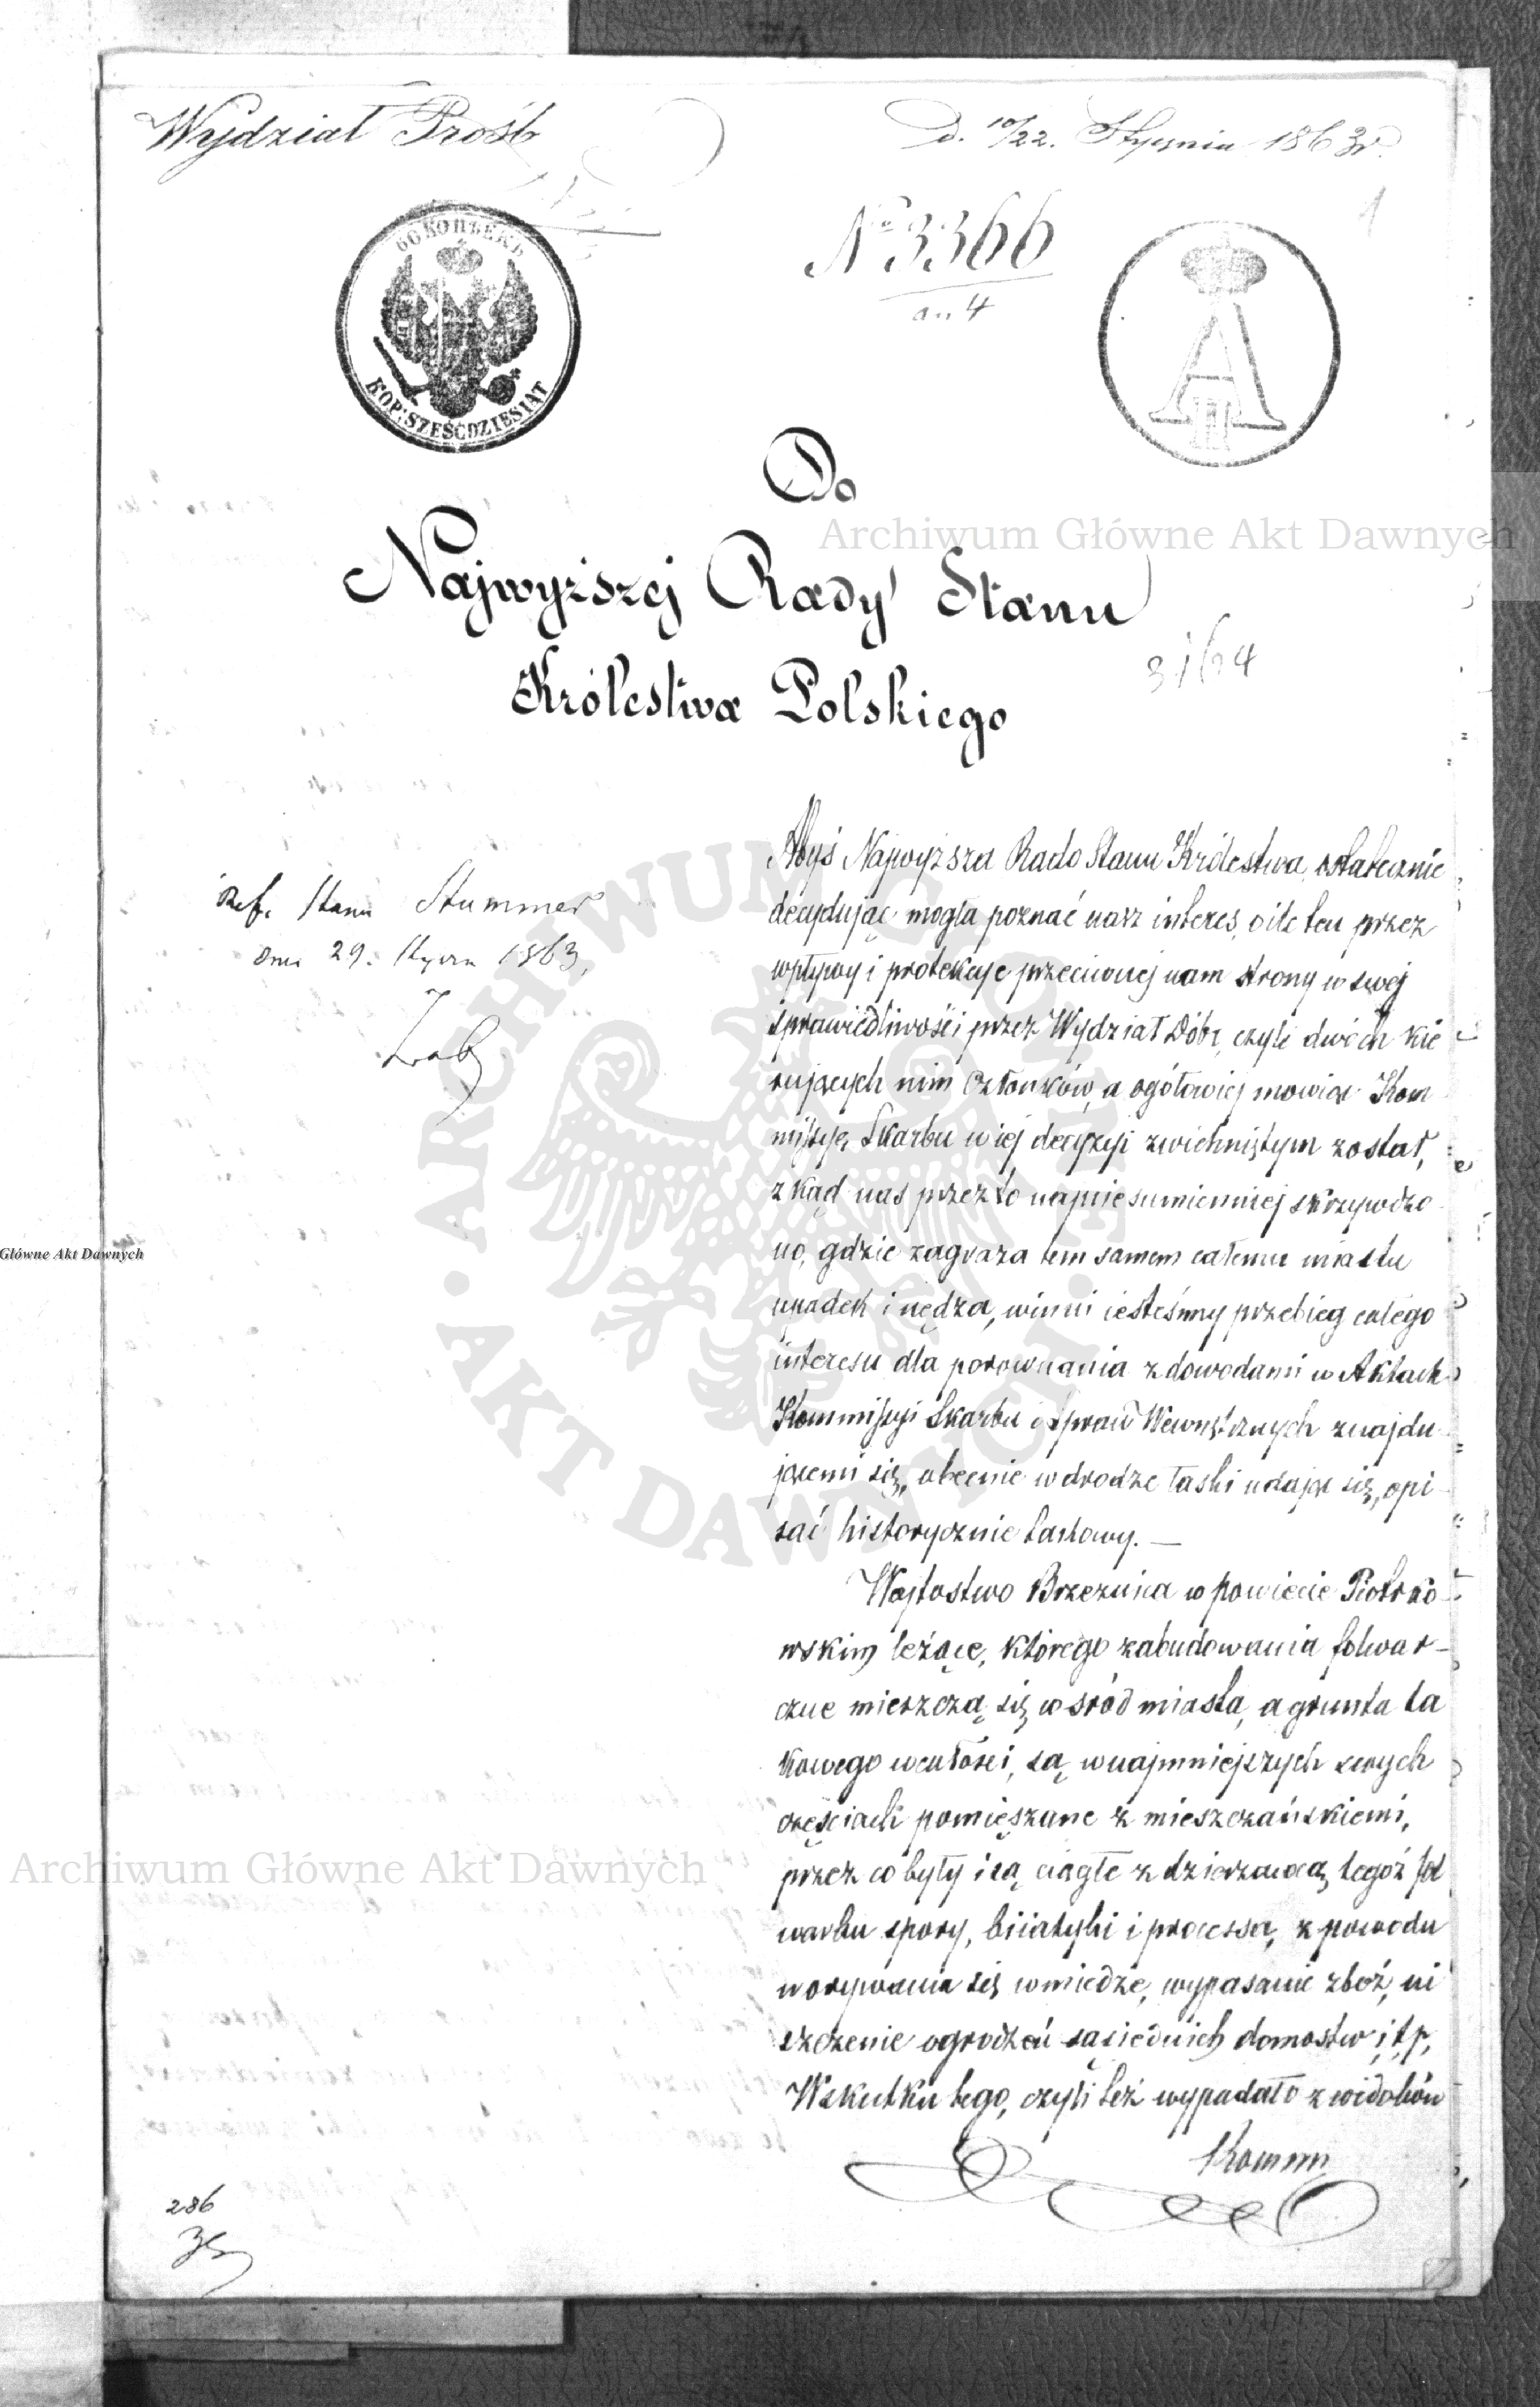 Wydział Próśb
D. 10/22. Stycznia 1863 r.
1
N° 3366
an 4
60 КОПѢЕКЪ
KOP: SZEŚĆDZIESIĄT
A
II
Do
Najwyższej Rady Stanu
Królestwa Polskiego
Ref. Stanu Stummer
dnia 29. Stycz 1863.
Abyś Najwyższa Rado Stanu Królestwa, ostatecznie
decydując mogła poznać nasz interes, oile ten przez
wpływy i protekcye przeciwnej nam strony w swej
sprawiedliwości przez Wydział Dóbr, czyli dwóch kie
rujących nim Członków, a ogółowiej mowiąc Kom
missyę Skarbu w iej decyzyi zwichniętym został,
zkąd nas przez to najniesumienniej skrzywdzo
no, gdzie zagraża tem samem całemu miastu
upadek i nędza, winni iesteśmy przebieg całego
interesu dla porownania z dowodami w Aktach
Kommissyi Skarbu i Spraw Wewnętrznych znajdu
jącemi się, obecnie w drodze łaski udając się, opi
sać historycznie takowy. —
Wójtostwo Brzeznica w powiecie Piotrko
wskim leżące, którego zabudowania folwar-
czne mieszczą się wśród miasta, a grunta ta
kowego w całości, są w najmniejszych swych
częściach pomięszane z mieszczańskiemi,
przez co były i są ciągłe z dzierzawcą tegoż fol
warku spory, bijatyki i processa, z powodu
worywania się w miedze, wypasanie zbóż, ni
szczenie ogrodzeń sąsiednich domostw i t. p.
Wskutku tego, czyli też wypadało z widoków
Komm
286
Archiwum Główne Akt Dawnych
Główne Akt Dawnych
Archiwum Główne Akt Dawnych
ARCHIWUM GŁÓWNE AKT DAWNYCH